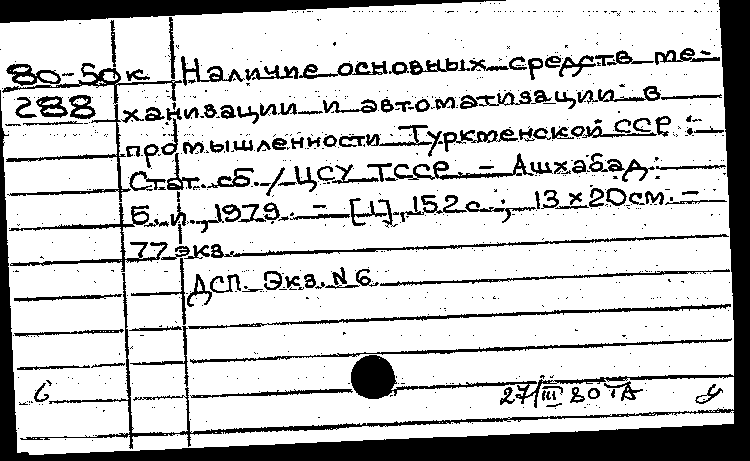 80-50к Наличие основных средств ме-
288 ханизации и автоматизации в
промышленности Туркменской ССР :
Стат. сб. / ЦСУ ТССР. - Ашхабад :
Б. и., 1979. - [1], 152 с. ; 13 x 20 см. -
77 экз.
ДСП. Экз. N 6
6 27/III 80